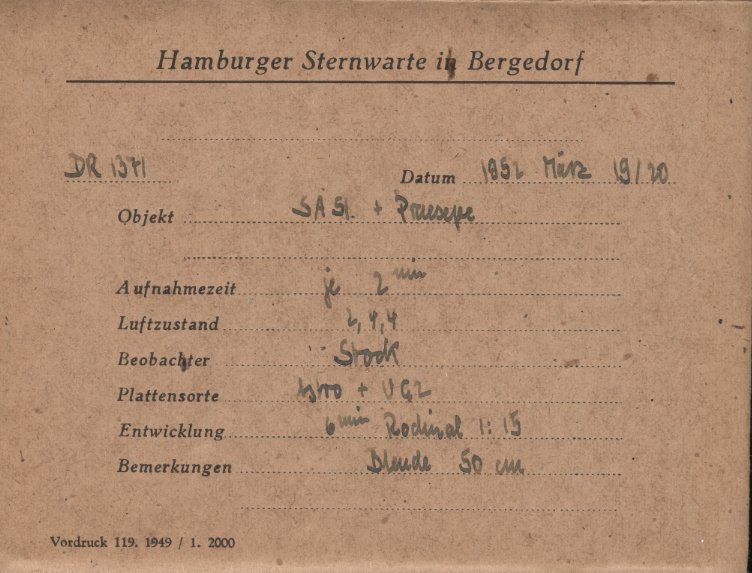 Hamburger Sternwarte in Bergedorf
DR 1371 Datum 1952 März 19/20
Objekt SA 51 + Praesepe
Aufnahmezeit je 2 min
Luftzustand 2,4,4
Beobachter Stock
Plattensorte + UG2
Entwicklung 6 min Rodinal 1:15
Bemerkungen Blende 50 cm
Vordruck 119. 1949 / 1. 2000